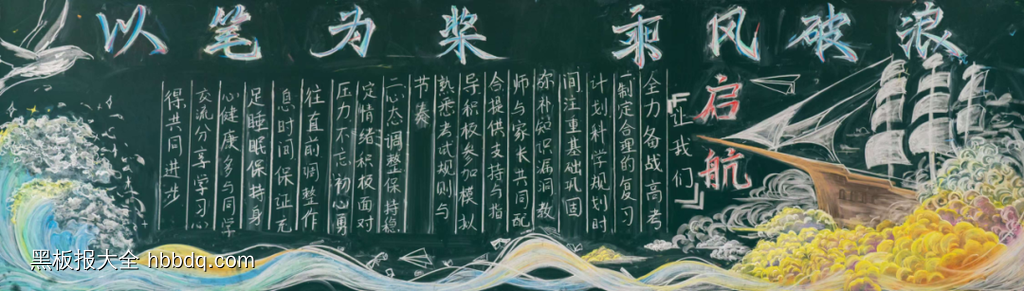 以笔为桨 乘风破浪
启航
『让我们』
全力备战高考
一制定合理的复习
计划科学规划时
间注重基础巩固
弥补知识漏洞教
师与家长共同配
合提供支持与指
导积极参加模拟
熟悉考试规则与
节奏
二心态调整保持稳
定情绪积极面对
压力不忘初心勇
往直前调整作
息时间保证充
足睡眠保持身
心健康多与同学
交流分享学习心
得共同进步
黑板报大全 hbbdq.com